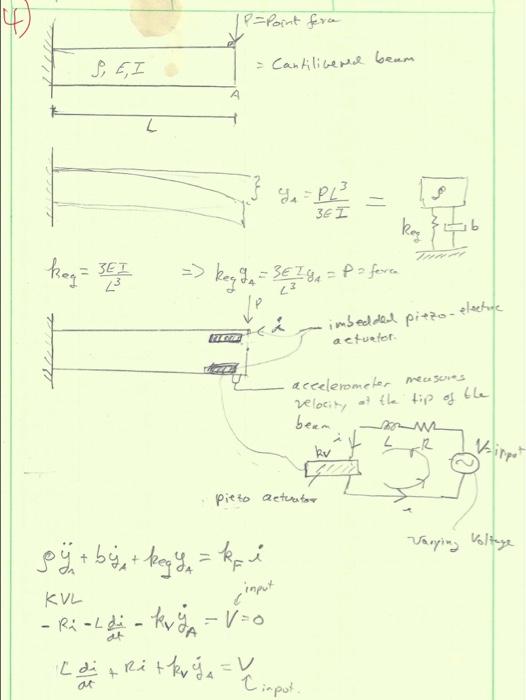 4)
P = Point force
ρ, E, I
= Cantilivered beam
A
L
y_A = PL³/3EI =
ρ
k_eq
b
k_eq = 3EI/L³ => k_eq y_A = 3EI/L³ y_A = P = force
P
i
imbedded piezo-electric
actuator.
accelerometer measures
velocity at the tip of the
beam
i
L
R
kv
V = input
i
piezo actuator
Varying Voltage
ρÿ_A + bẏ_A + k_eq y_A = k_F i
KVL
input
- Ri - L di/dt - k_v ẏ_A - V = 0
L di/dt + Ri + k_v ẏ_A = V
input.